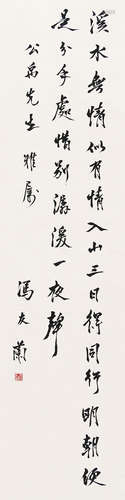 溪水無情似有情入山三日得同行明朝便
是分手處惜別潺湲一夜聲
公禹先生 雅屬
馮友蘭